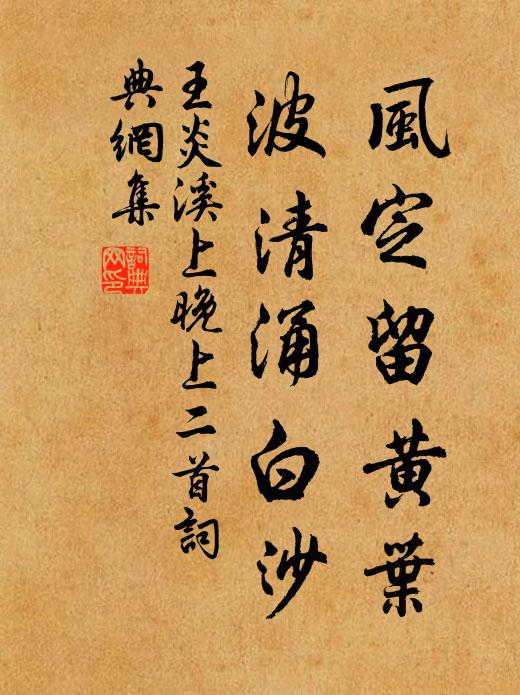 風定留黃葉
波清涌白沙
王炎溪上晚上二首詞
典網集
詞典網印